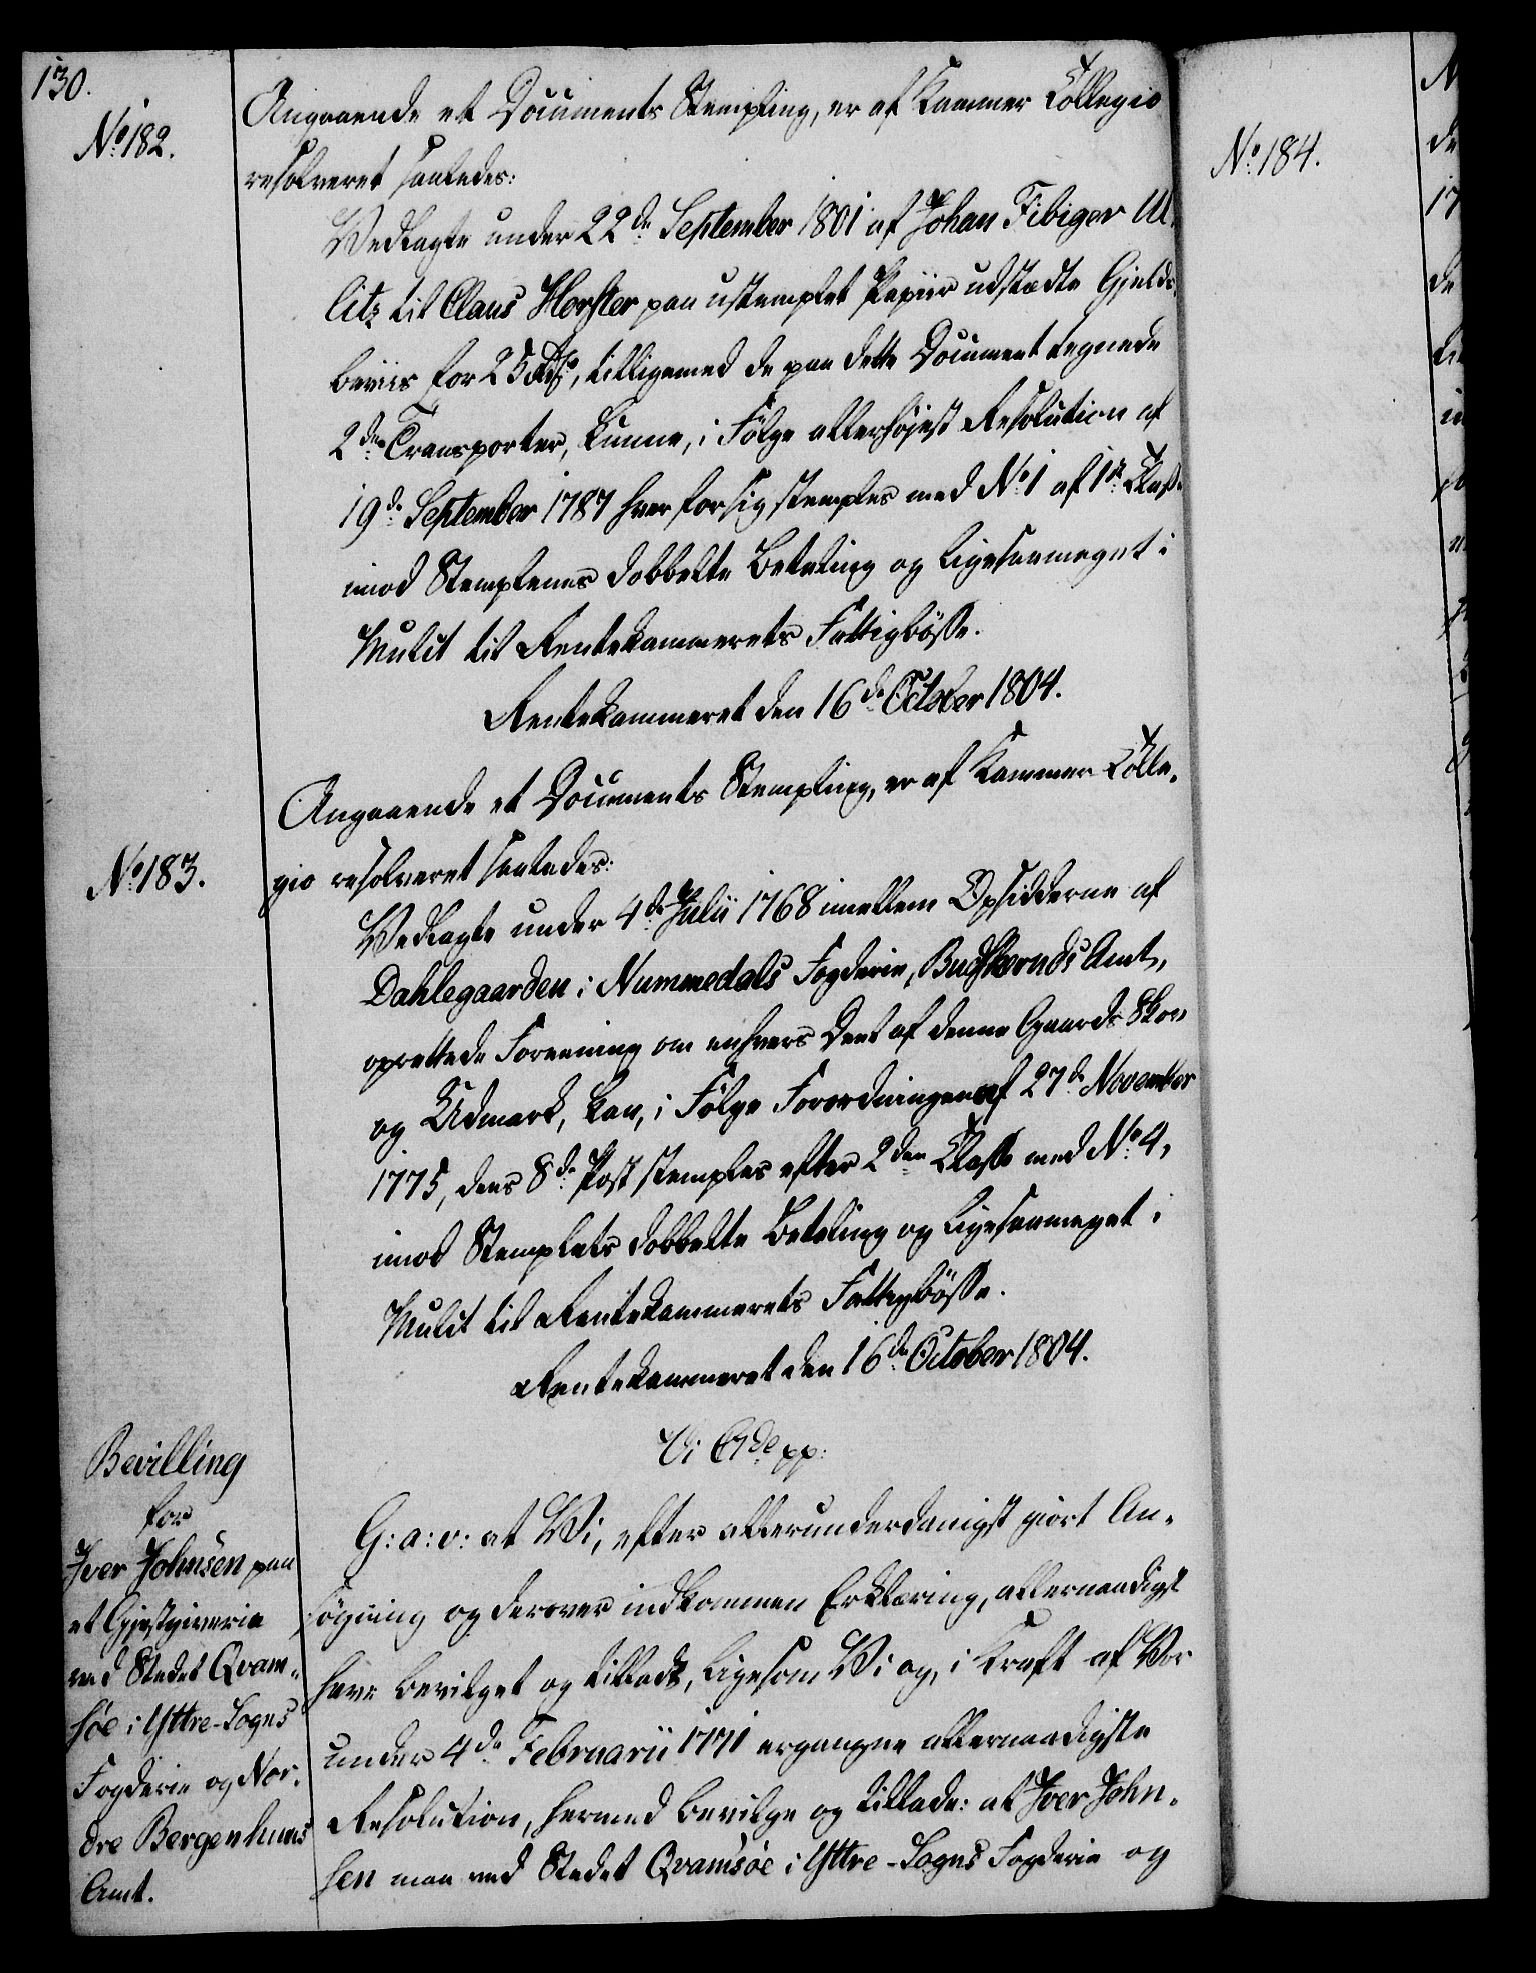 130.
No 182.
Angaaende et Documents Stempling, er af Kammer Collegio
resolveret saaledes:
Vedlagte under 22de September 1801 af Johan Fibiger Ul,
litz til Claus Horster paa ustemplet Papiir udstædte Gjelds,
beviis for 25 Rdr, tilligemed de paa dette Document tegnede
2de Transporter, kunne, i Følge allerhøjest Resolution af
19de September 1787 hver for sig stemples med No 1 af 1ste Classe
imod Stemplenes dobbelte Betaling og ligesaameget i
Mulct til Rentekammerets Fattigbøsse.
Rentekammeret den 16de October 1804.
No 183.
Angaaende et Documents Stempling, er af Kammer Colle,
gio resolveret saaledes:
Vedlagte under 4de Julii 1768 imellem Opsidderne af
Dahlegaarden i Nummedals Fogderie, Buschernds Amt,
oprettede Foreening om enhvers Deel af denne Gaards Skov
og Udmark, kan, i Følge Forordningen af 27de November
1775, dens 8de Post stemples efter 2den Classe med No 4,
imod Stemplets dobbelte Betaling og ligesaameget i
Mulct til Rentekammerets Fattigbøsse.
Rentekammeret den 16de October 1804.
Bevilling
for
Iver Johnsen paa
et Gjestgiverie
ved Stedet Qvam,
søe i Yttre-Sogns
Fogderie og Nor,
dre Bergenhuus
Amt.
Vi C 7de pp:
G: a: v: at Vi, efter allerunderdanigst giort An,
søgning og derover indkommen Erklæring, allernaadigst
have bevilget og tilladt, ligesom Vi og, i Kraft af Vor
under 4de Februarii 1771 ergangne allernaadigste
Resolution, hermed bevilge og tillade: at Iver John,
sen maa ved Stedet Qvamsøe i Yttre-Sogns Fogderie og
No 184.